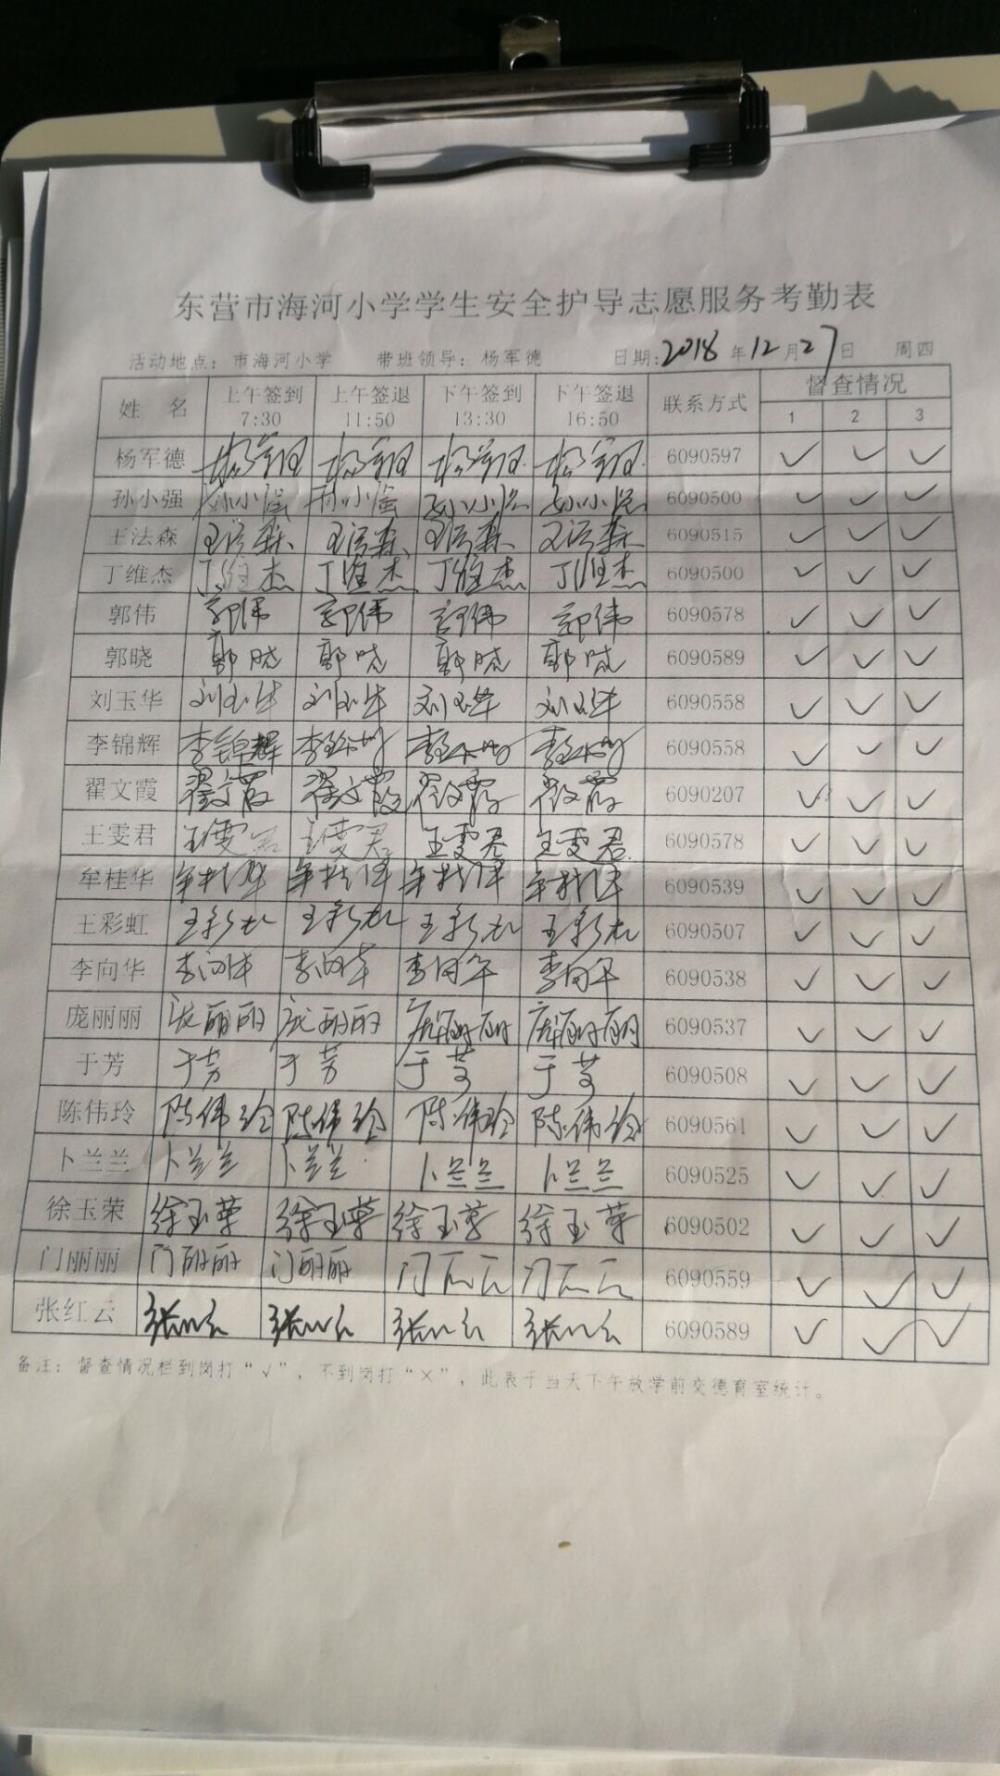 东营市海河小学学生安全护导志愿服务考勤表
活动地点：市海河小学 带班领导：杨军德 日期：2018年12月27日 周四
姓名 上午签到 7:30 上午签退 11:50 下午签到 13:30 下午签退 16:50 联系方式 督查情况 1 2 3
杨军德 杨军德 杨军德 杨军德 杨军德 6090597 ✓ ✓ ✓
孙小强 孙小强 孙小强 孙小强 孙小强 6090500 ✓ ✓ ✓
王法森 王法森 王法森 王法森 王法森 6090515 ✓ ✓ ✓
丁维杰 丁维杰 丁维杰 丁维杰 丁维杰 6090500 ✓ ✓ ✓
郭伟 郭伟 郭伟 郭伟 郭伟 6090578 ✓ ✓ ✓
郭晓 郭晓 郭晓 郭晓 郭晓 6090589 ✓ ✓ ✓
刘玉华 刘玉华 刘玉华 刘玉华 刘玉华 6090558 ✓ ✓ ✓
李锦辉 李锦辉 李锦辉 李锦辉 李锦辉 6090558 ✓ ✓ ✓
翟文霞 翟文霞 翟文霞 翟文霞 翟文霞 6090207 ✓ ✓ ✓
王雯君 王雯君 王雯君 王雯君 王雯君 6090578 ✓ ✓ ✓
牟桂华 牟桂华 牟桂华 牟桂华 牟桂华 6090539 ✓ ✓ ✓
王彩虹 王彩虹 王彩虹 王彩虹 王彩虹 6090507 ✓ ✓ ✓
李向华 李向华 李向华 李向华 李向华 6090538 ✓ ✓ ✓
庞丽丽 庞丽丽 庞丽丽 庞丽丽 庞丽丽 6090537 ✓ ✓ ✓
于芳 于芳 于芳 于芳 于芳 6090508 ✓ ✓ ✓
陈伟玲 陈伟玲 陈伟玲 陈伟玲 陈伟玲 6090561 ✓ ✓ ✓
卜兰兰 卜兰兰 卜兰兰 卜兰兰 卜兰兰 6090525 ✓ ✓ ✓
徐玉荣 徐玉荣 徐玉荣 徐玉荣 徐玉荣 6090502 ✓ ✓ ✓
门丽丽 门丽丽 门丽丽 门丽丽 门丽丽 6090559 ✓ ✓ ✓
张红云 张红云 张红云 张红云 张红云 6090589 ✓ ✓ ✓
备注：督查情况栏到岗打“√”，不到岗打“×”，此表于当天下午放学前交德育室统计。